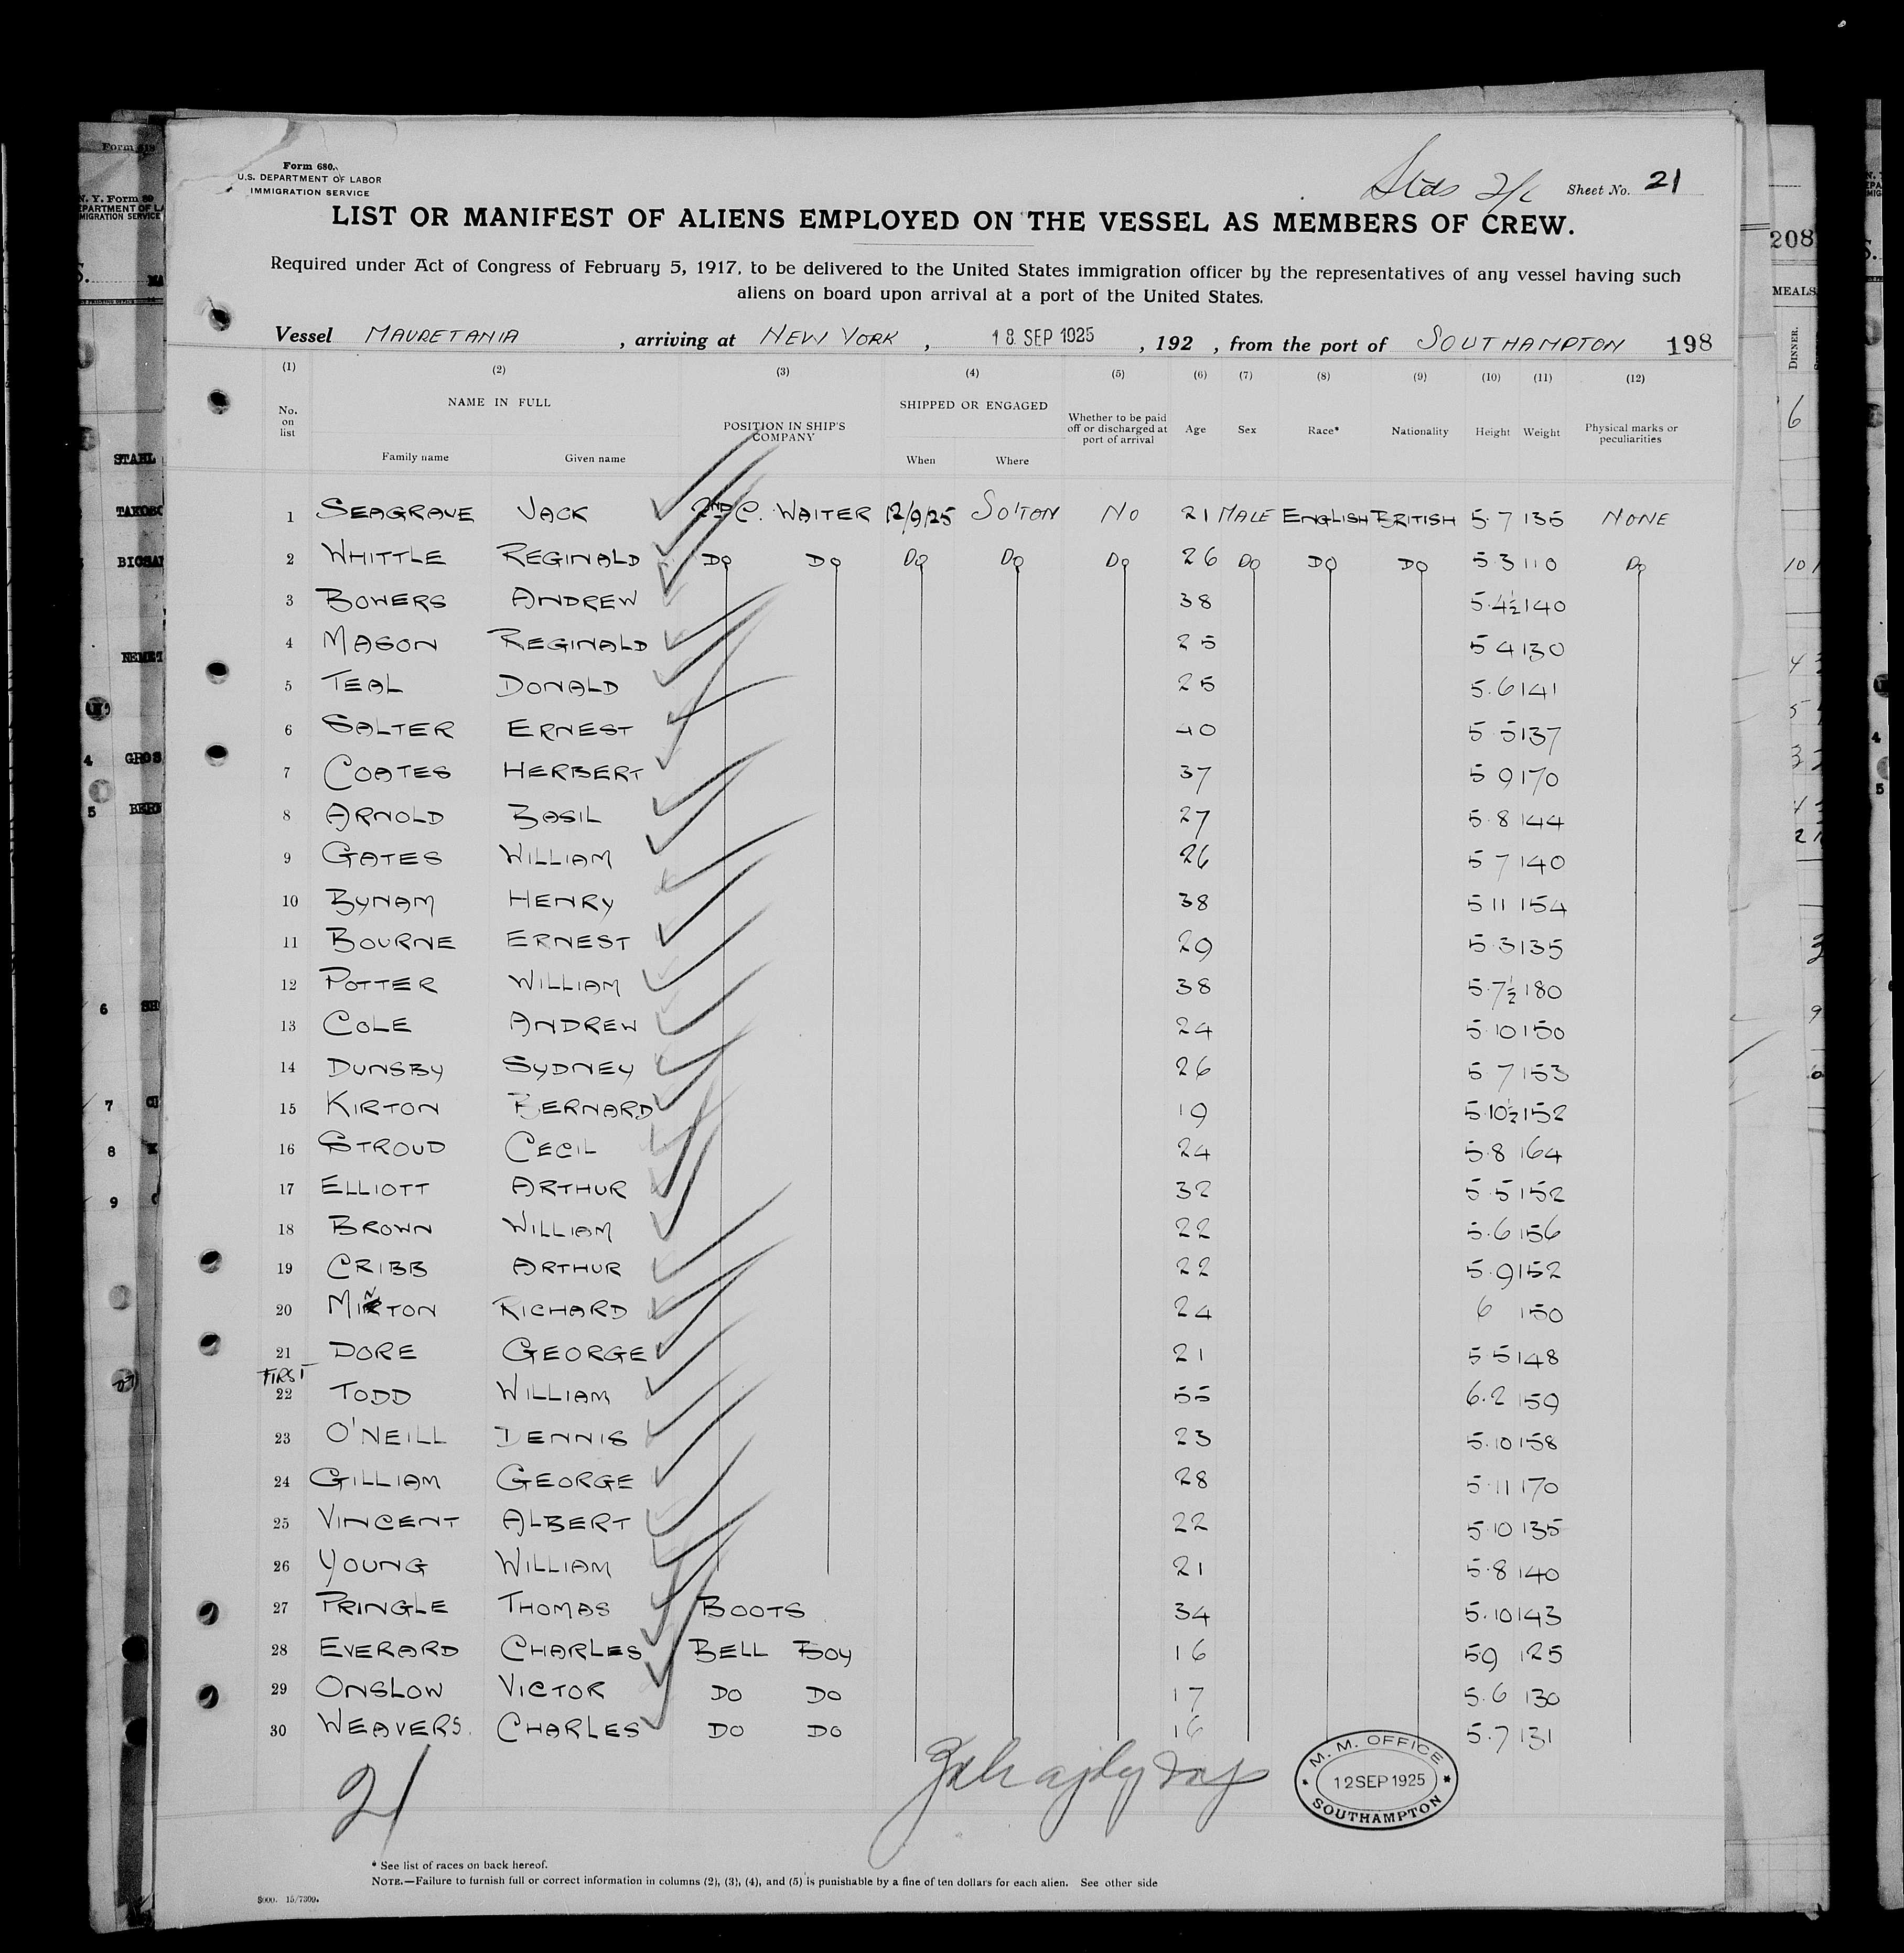 Form 680.
U.S. DEPARTMENT OF LABOR
IMMIGRATION SERVICE
Stds 2/c Sheet No. 21
LIST OR MANIFEST OF ALIENS EMPLOYED ON THE VESSEL AS MEMBERS OF CREW.
Required under Act of Congress of February 5, 1917, to be delivered to the United States immigration officer by the representatives of any vessel having such
aliens on board upon arrival at a port of the United States.
Vessel MAURETANIA, arriving at NEW YORK, 18 SEP 1925, 192 , from the port of SOUTHAMPTON 198
(1) (2) (3) (4) (5) (6) (7) (8) (9) (10) (11) (12)
No. on list NAME IN FULL POSITION IN SHIP'S COMPANY SHIPPED OR ENGAGED Whether to be paid off or discharged at port of arrival Age Sex Race* Nationality Height Weight Physical marks or peculiarities
Family name Given name When Where
1 SEAGRAVE JACK 2ND C. WAITER 12/9/25 SO'TON NO 21 MALE ENGLISH BRITISH 5.7 135 NONE
2 WHITTLE REGINALD DO DO DO DO DO 26 DO DO DO 5 3 110 DO
3 BOWERS ANDREW 38 5.4½ 140
4 MASON REGINALD 25 5 4 130
5 TEAL DONALD 25 5.6 141
6 SALTER ERNEST 40 5 5 137
7 COATES HERBERT 37 5 9 170
8 ARNOLD BASIL 27 5.8 144
9 GATES WILLIAM 26 5 7 140
10 BYNAM HENRY 38 5 11 154
11 BOURNE ERNEST 29 5.3 135
12 POTTER WILLIAM 38 5.7½ 180
13 COLE ANDREW 24 5.10 150
14 DUNSBY SYDNEY 26 5 7 153
15 KIRTON BERNARD 19 5.10½ 152
16 STROUD CECIL 24 5.8 164
17 ELLIOTT ARTHUR 32 5 5 152
18 BROWN WILLIAM 22 5.6 156
19 CRIBB ARTHUR 22 5.9 152
20 MINTON RICHARD 24 6 150
21 DORE GEORGE 21 5 5 148
FIRST
22 TODD WILLIAM 55 6.2 159
23 O'NEILL DENNIS 23 5.10 158
24 GILLIAM GEORGE 28 5.11 170
25 VINCENT ALBERT 22 5.10 135
26 YOUNG WILLIAM 21 5.8 140
27 PRINGLE THOMAS BOOTS 34 5.10 143
28 EVERARD CHARLES BELL BOY 16 5 9 125
29 ONSLOW VICTOR DO DO 17 5.6 130
30 WEAVERS. CHARLES DO DO 16 5.7 131
21
M. M. OFFICE
12 SEP 1925
SOUTHAMPTON
* See list of races on back hereof.
NOTE.—Failure to furnish full or correct information in columns (2), (3), (4), and (5) is punishable by a fine of ten dollars for each alien. See other side
5000. 15/7309.